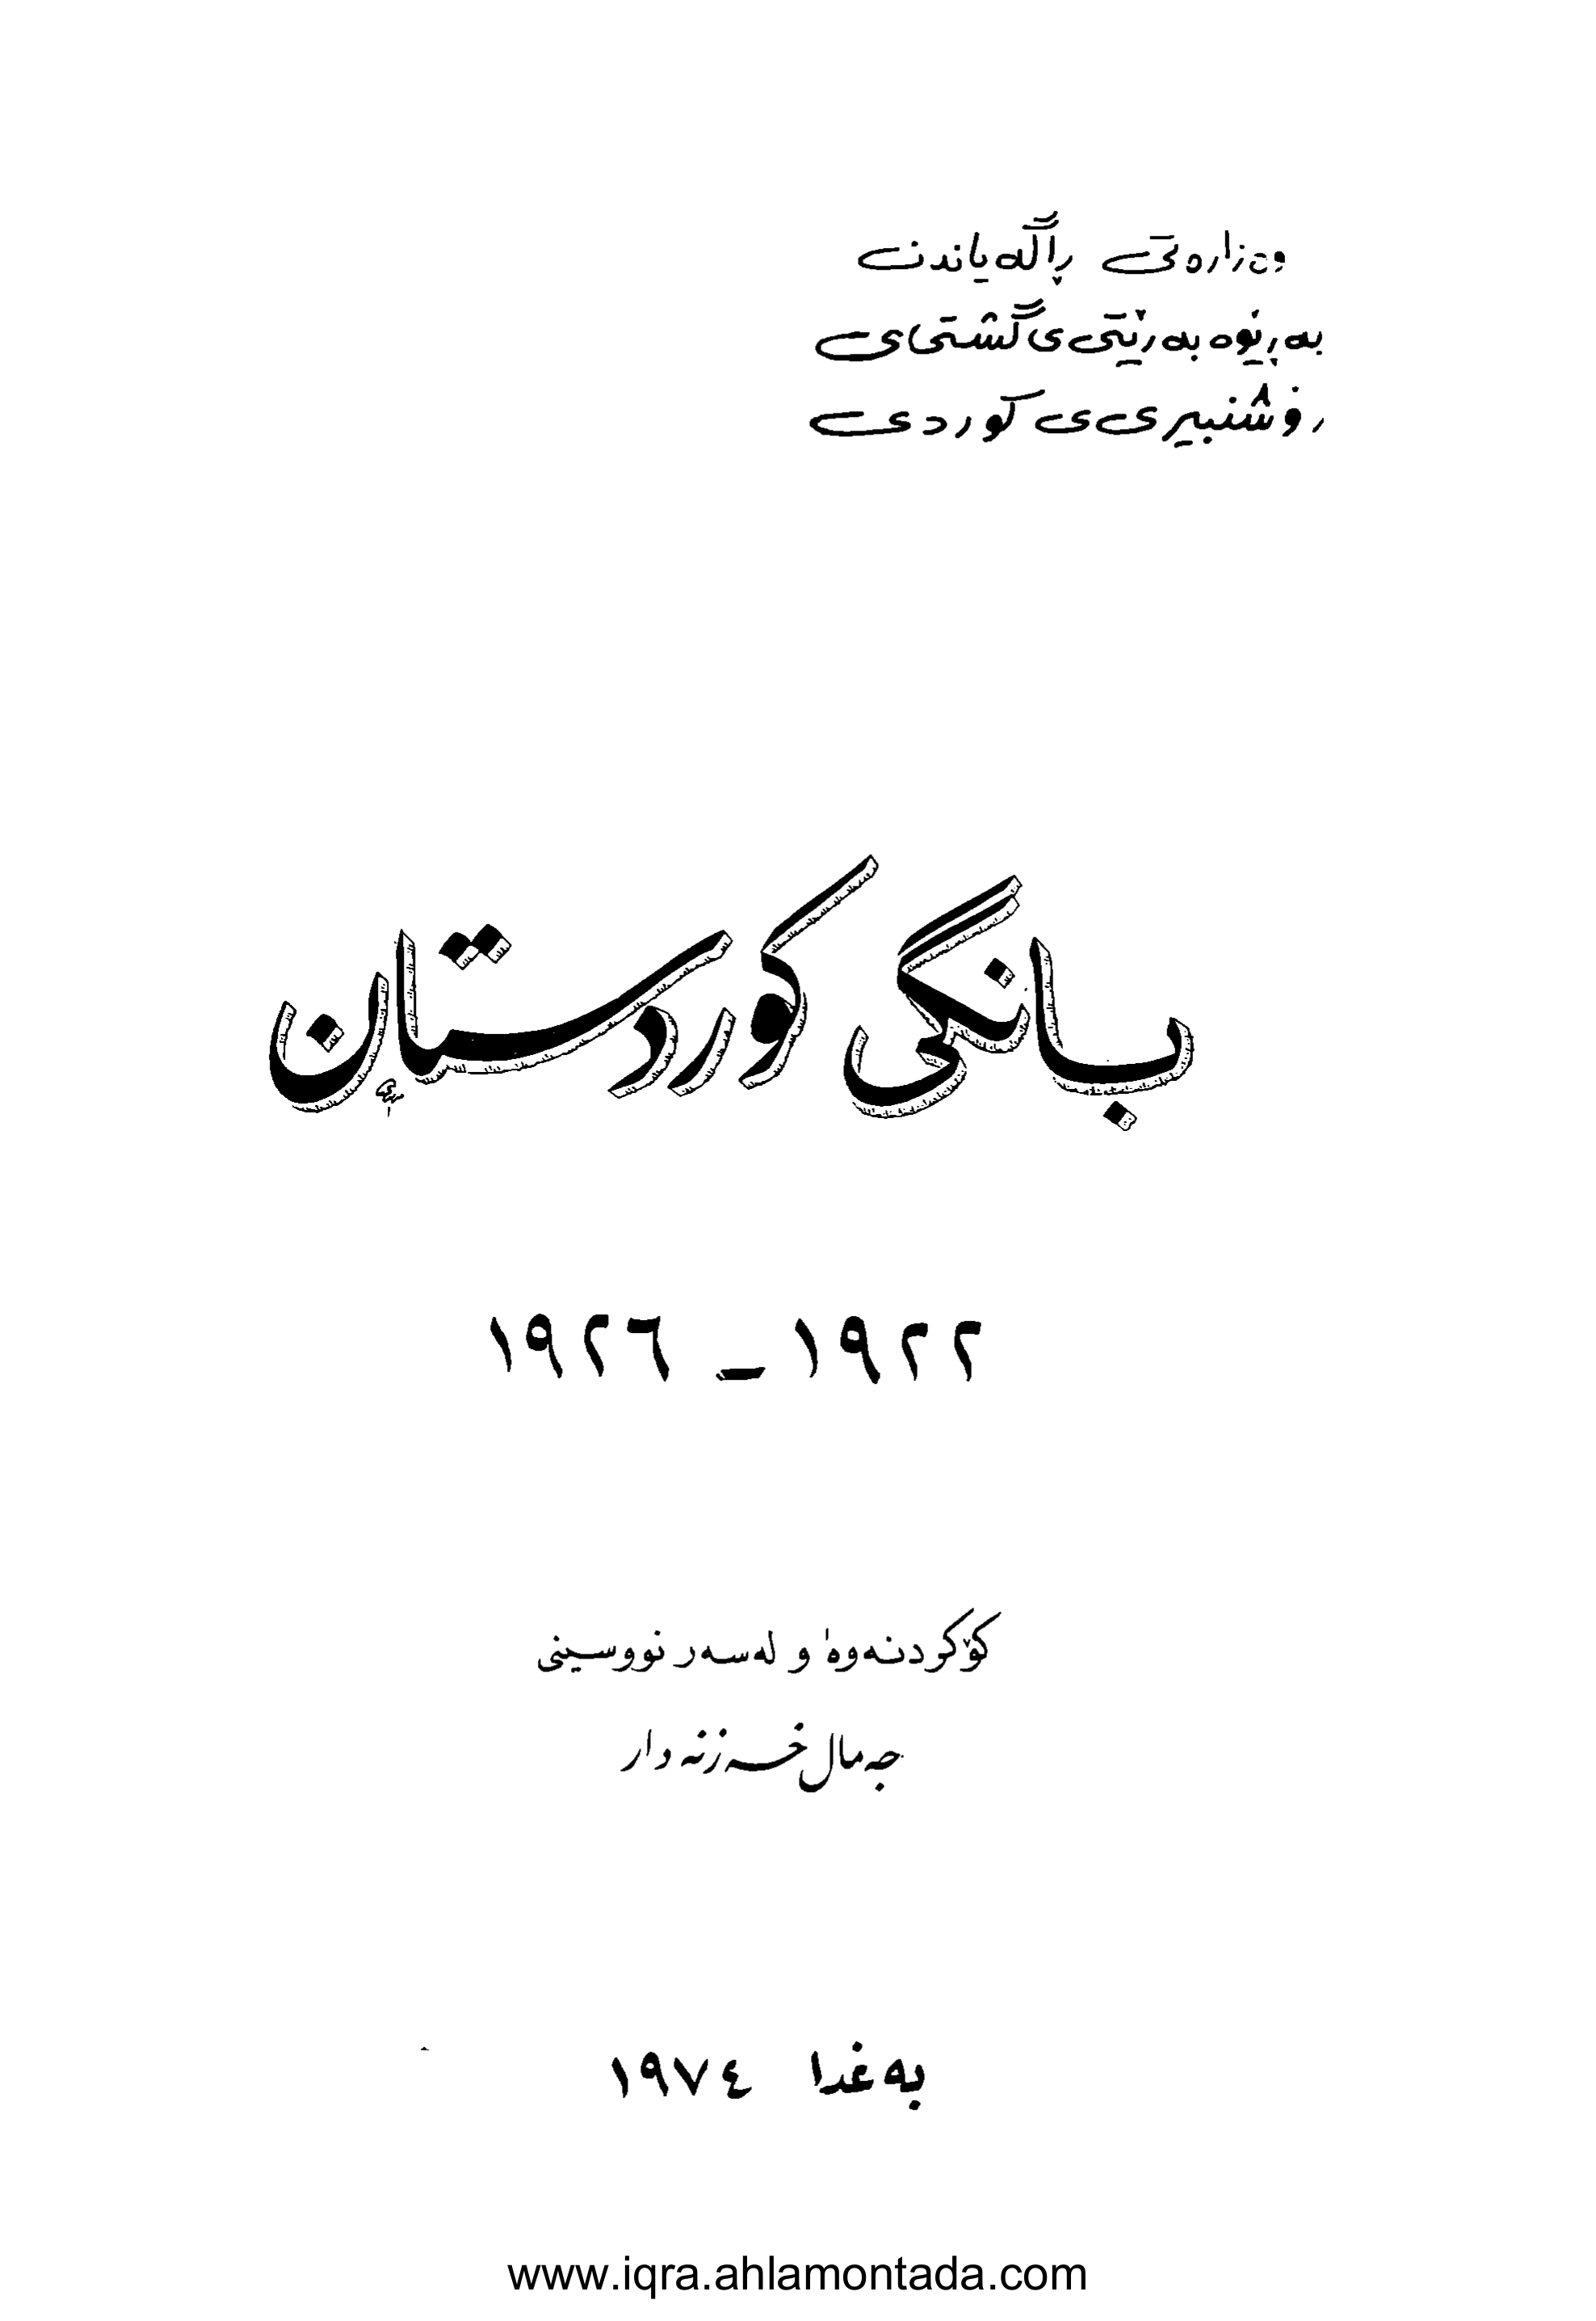 وەزارەتی ڕاگەیاندن
بەڕێوەبەرێتی ی گشتی ی
رۆشنبیری ی کوردی
بانگی کوردستان
١٩٢٢ ـ ١٩٢٦
کۆکردنەوە و لەسەر نووسینی
جەمال خەزنەدار
بەغدا ١٩٧٤
www.iqra.ahlamontada.com